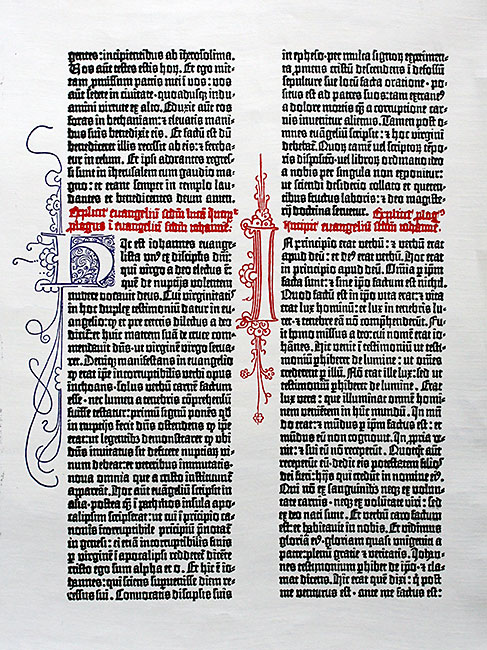 gentes: incipientibus ab iherosolima.
Vos aūt testes estis horū. Et ego mit-
tam ꝓmissum patris mei ī vos: vos
aūt sedete in civitate quoadusqȝ indu-
amini virtute ex alto. Eduxit aūt eos
foras in bethaniam: et elevatis mani-
bus suis benedixit eis. Et factū est dū
benediceret illis recessit ab eis: et fereba-
tur in celum. Et ipi adorantes regres-
si sunt in iherusalem cum gaudio ma-
gno: et erant semper in templo lau-
dantes et benedicentes deum amen.
Explicit evangeliū scdm lucā Incipit
plogus ī evangeliū scdm iohannē.
Hic est iohannes evange-
lista unꝰ ex discipulis dñi:
qui virgo a deo electus ē:
quē de nuptijs volentem
nubere vocavit deus. Cui virginitatis
in hoc duplex testimoniū datur in evā-
gelio: ꝙ et pre ceteris dilectus a deo
dicit: et huic matrem suā de cruce com-
mendavit dñs: ut virginē virgo serva-
ret. Deniqȝ manifestans in evangelio
ꝙ erat ipe incorruptibilis verbi opus
inchoans: solus verbū carnē factum
esse: nec lumen a tenebris cōprehensū
fuisse testatur: primū signū ponēs qd
in nuptijs fecit dñs ostendens ꝙ ipe
erat: ut legentibus demonstraret ꝙ ubi
dñs invitatus sit deficere nuptiarū vi-
num debeat: et veteribus immutatis
nova omnia que a cristo instituunt
appareāt. Hoc aūt evāgeliū scripsit in
asia. postea ꝙ ī pathmos insula apo-
calipsim scripserat: ut cui ī prīcipio ca-
nonis īcorruptibile prīcipiū pnotat
in genesi: ei etiā īcorruptibilis finis
p virginē ī apocalipsi redderet dicēte
cristo ego sum alpha et o. Et hic ē io-
hannes: qui sciens supvenisse diem re-
cessus sui. Convocatis discipulis suis
in epheso. per multa signoꝝ experimen-
ta ꝓmens cristū descendens ī defossū
sepulture sue locū facta oratione. po-
situs est ad patres suos: tam extraneꝰ
a dolore mortis ꝙ a corruptione car-
nis invenitur alienus. Tamen post o-
mnes evāgeliū scripsit: et hoc virgini
debebat. Quoꝝ tamē vel scriptoꝝ tēpo-
ris dispositō. vel libroꝝ ordinatio ideo
a nobis per singula non exponitur:
ut sciendi desiderio collato et queren-
tibus fructus laboris: et deo magiste-
rij doctrina servetur. Explicit plogꝰ
Incipit evangeliū scdm iohannē.
In principio erat verbū: et verbū erat
apud deū: et deꝰ erat verbū. Hoc erat
in principio apud deū. Omnia p ipm
facta sunt: et sine ipo factum est nichil.
Quod factū est in ipo vita erat: et vita
erat lux hominū: et lux in tenebris lu-
cet. et tenebre eā nō comprehenderūt. Fu-
it homo missus a deo: cui nomē erat io-
hānes. Hic venit ī testimoniū ut testi-
moniū phiberet de lumine: ut omēs
crederēt p illū. Nō erat ille lux: sed ut
testimoniū phiberet de lumine. Erat
lux vera: que illuminat omnē homi-
nem venientem in hūc mundū. In mū-
do erat: et mūdus p ipm factus est: et
mūdus eū non cognovit. In ꝓpria ve-
nit: et sui eū nō receperūt. Quotqȝ aūt
receperūt eū. dedit eis potestatem filios
dei fieri: hijs qui credūt in nomine eiꝰ.
Qui nō ex sanguinibꝫ neqȝ ex volun-
tate carnis. neqȝ ex volūtate viri: sed
ex deo nati sunt. Et verbū caro factum
est: et habitavit in nobis. Et vidimus
gloriā eiꝰ. gloriam quasi unigeniti a
patre: plenū gratie et veritatis. Iohan-
nes testimoniū phibet de ipo. et cla-
mat dicens. Hic erat quē dixi: ꝙ post
me venturus est. ante me factus est: